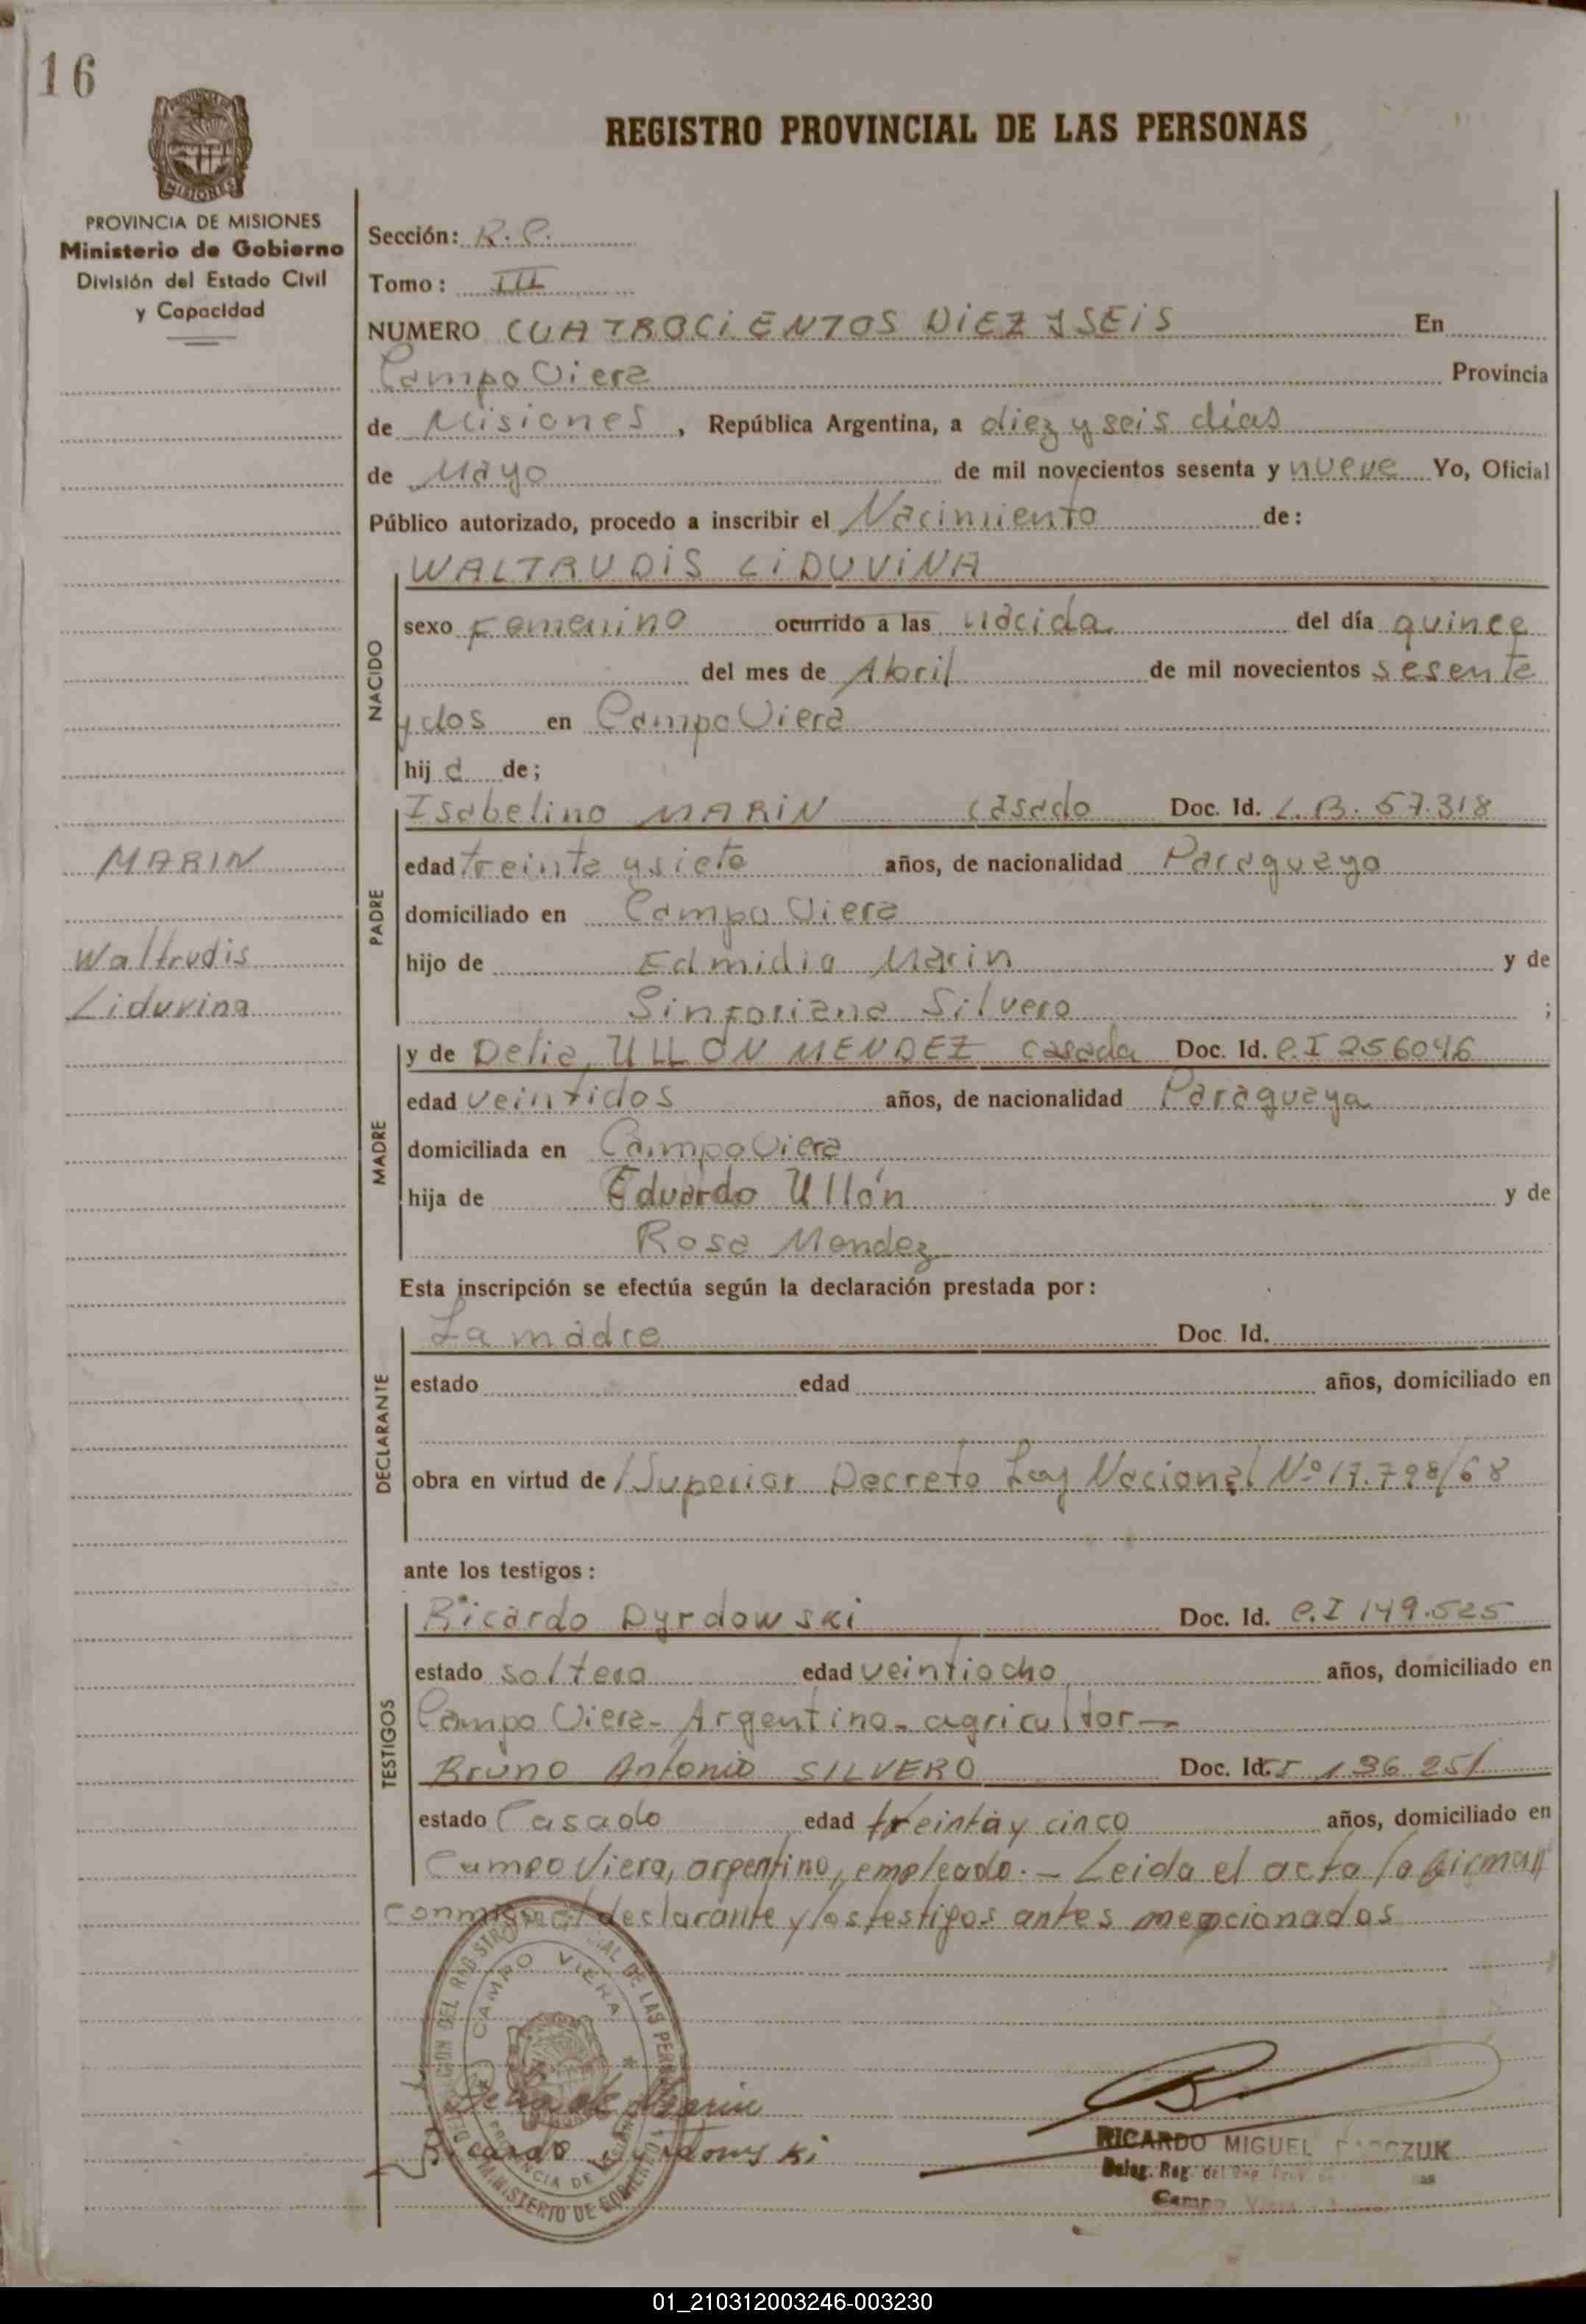 16
REGISTRO PROVINCIAL DE LAS PERSONAS
MISIONES
PROVINCIA DE MISIONES
Ministerio de Gobierno
División del Estado Civil
y Capacidad
Sección: R. P.
Tomo: III
NUMERO CUATROCIENTOS DIEZ Y SEIS En
Campo Viera Provincia
de Misiones, República Argentina, a diez y seis días
de Mayo de mil novecientos sesenta y nueve Yo, Oficial
Público autorizado, procedo a inscribir el Nacimiento de:
NACIDO
WALTRUDIS LIDUVINA
sexo Femenino ocurrido a las nacida del día quince
del mes de Abril de mil novecientos sesenta
y dos en Campo Viera
hij a de;
PADRE
Isabelino MARIN casado Doc. Id. L.B. 57.318
edad treinta y siete años, de nacionalidad Paraguayo
domiciliado en Campo Viera
hijo de Edmidio Marin y de
Sinforiana Silvero ;
MARIN
Waltrudis
Liduvina
MADRE
y de Delia ULLON MENDEZ casada Doc. Id. C.I 256046
edad veintidos años, de nacionalidad Paraguaya
domiciliada en Campo Viera
hija de Eduardo Ullón y de
Rosa Mendez
Esta inscripción se efectúa según la declaración prestada por:
DECLARANTE
La madre Doc. Id.
estado edad años, domiciliado en
obra en virtud de /Superior Decreto Ley Nacional Nº 17.798/68
ante los testigos:
TESTIGOS
Ricardo Dyrdowski Doc. Id. C.I 149.525
estado soltero edad veintiocho años, domiciliado en
Campo Viera- Argentino- agricultor-
Bruno Antonio SILVERO Doc. Id. 136 251
estado Casado edad treinta y cinco años, domiciliado en
Campo Viera, argentino, empleado.- Leida el acta la firman
conmigo el declarante y los testigos antes mencionados
CAMPO VIERA
PROVINCIA DE MISIONES
MINISTERIO DE GOBIERNO
Delia de Marin
Ricardo Dyrdowski
RICARDO MIGUEL
Campo Viera
01_210312003246-003230